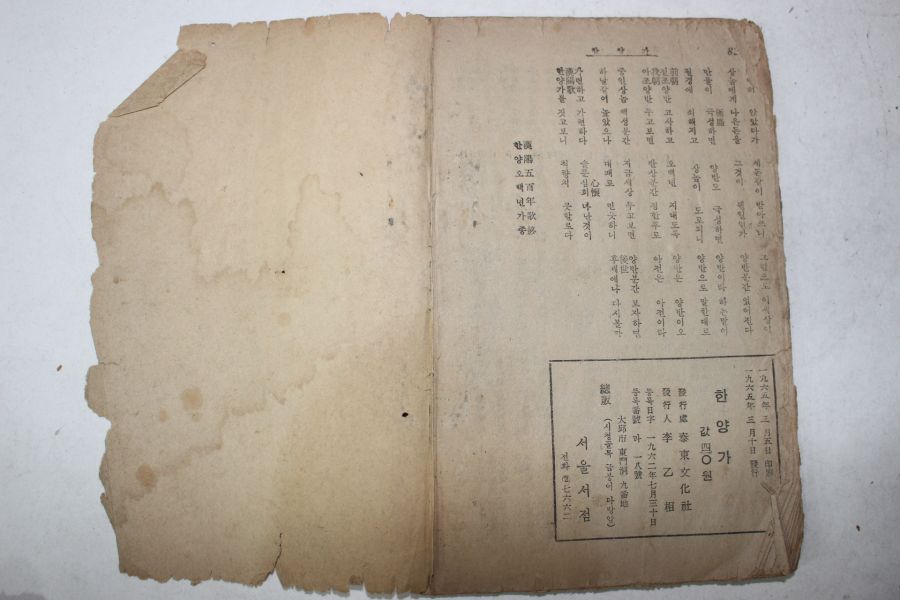 한양가
상놈에게 나은돈을
만들이 극성하면
필경에 쇠해지고
前朝 전조양반 고사하고
我朝 아조양반 두고보면
중인상놈 백성분간
하날갈어 높았으나
가련하고 가련하다
漢陽歌 한양가를 짓고보니
세돈팔이 받아쓰니
그것이
양반도 극성하면
상놈이 도로되니
오백년 지내도록
반상분간 정할루로
지금세상 두고보면
대패로 민듯하니
슬픈심회 心懷 나난것이
측량치 못할로다
양반분간 없어진다
양반이라 하는말이
양반으로 말한대로
양반은 양반이오
아전은 아전이라
양반분간 보자하면
後世 후세에나 다시볼가
漢陽五百年歌終
한양오백년가종
一九六五年 三月五日 印刷
一九六五年 三月十日 發行
한양가
값 四〇원
發行處 泰東文化社
發行人 李乙相
등록日字 一九六二年七月三十日
등록番號 마 一八號
大邱市 東門洞 九番地
總販 (시청골목 금붕어 다방앞)
서울서점
전화 ②七六六二